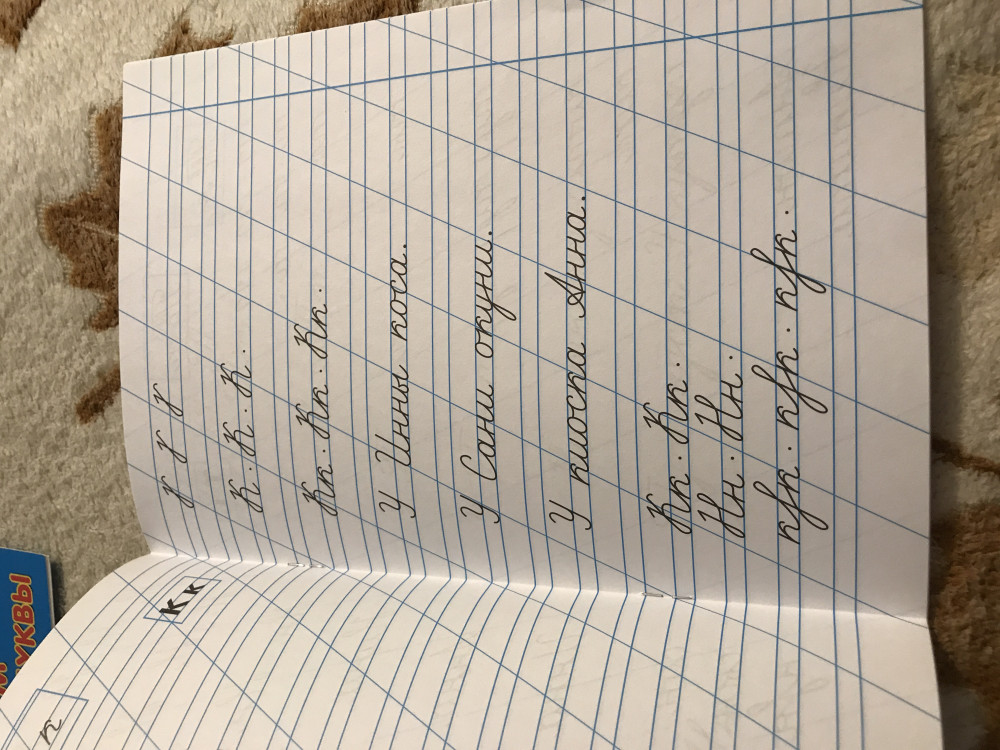 К · К · К ·
Кк · Кк · Кк ·
У Инны коса.
У Сани окуни.
У киоска Анна.
Кк · Кк ·
Нн · Нн ·
К к
к
УКВЫ